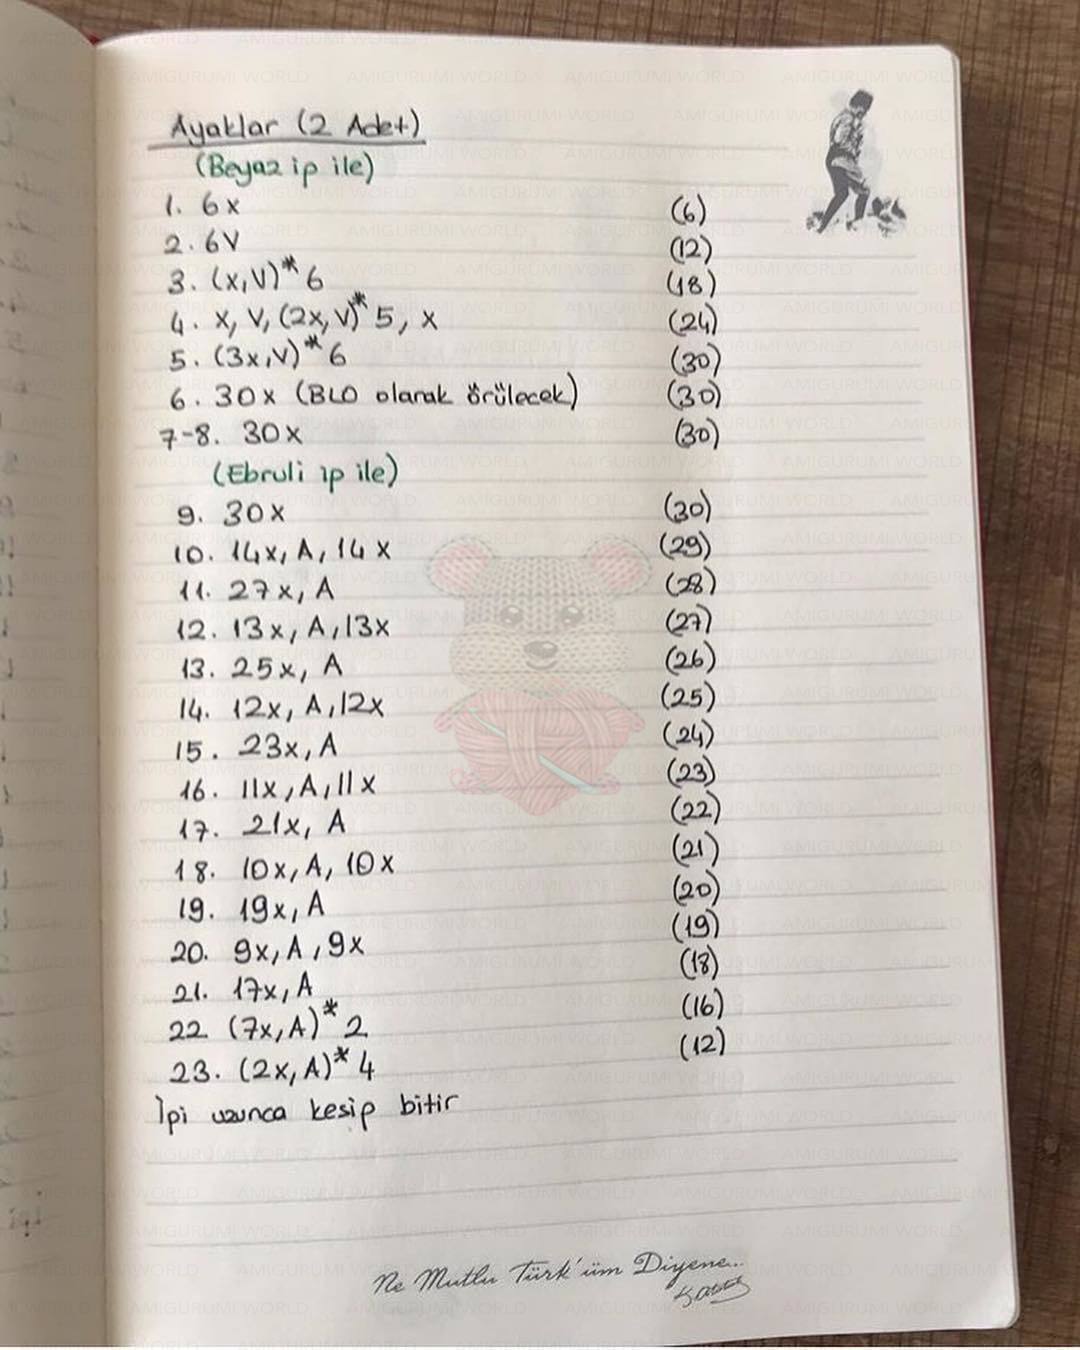 Ayaklar (2 Adet)
(Beyaz ip ile)
1. 6x (6)
2. 6V (12)
3. (x,V)* 6 (18)
4. x, V, (2x, V)* 5, x (24)
5. (3x,V)* 6 (30)
6. 30x (BLO olarak örülecek) (30)
7-8. 30x (30)
(Ebruli ip ile)
9. 30x (30)
10. 14x, A, 14x (29)
11. 27x, A (28)
12. 13x, A, 13x (27)
13. 25x, A (26)
14. 12x, A, 12x (25)
15. 23x, A (24)
16. 11x, A, 11x (23)
17. 21x, A (22)
18. 10x, A, 10x (21)
19. 19x, A (20)
20. 9x, A, 9x (19)
21. 17x, A (18)
22 (7x, A)* 2 (16)
23. (2x, A)* 4 (12)
İpi uzunca kesip bitir
Ne Mutlu Türk'üm Diyene..
K. Atatürk
AMIGURUMI WORLD